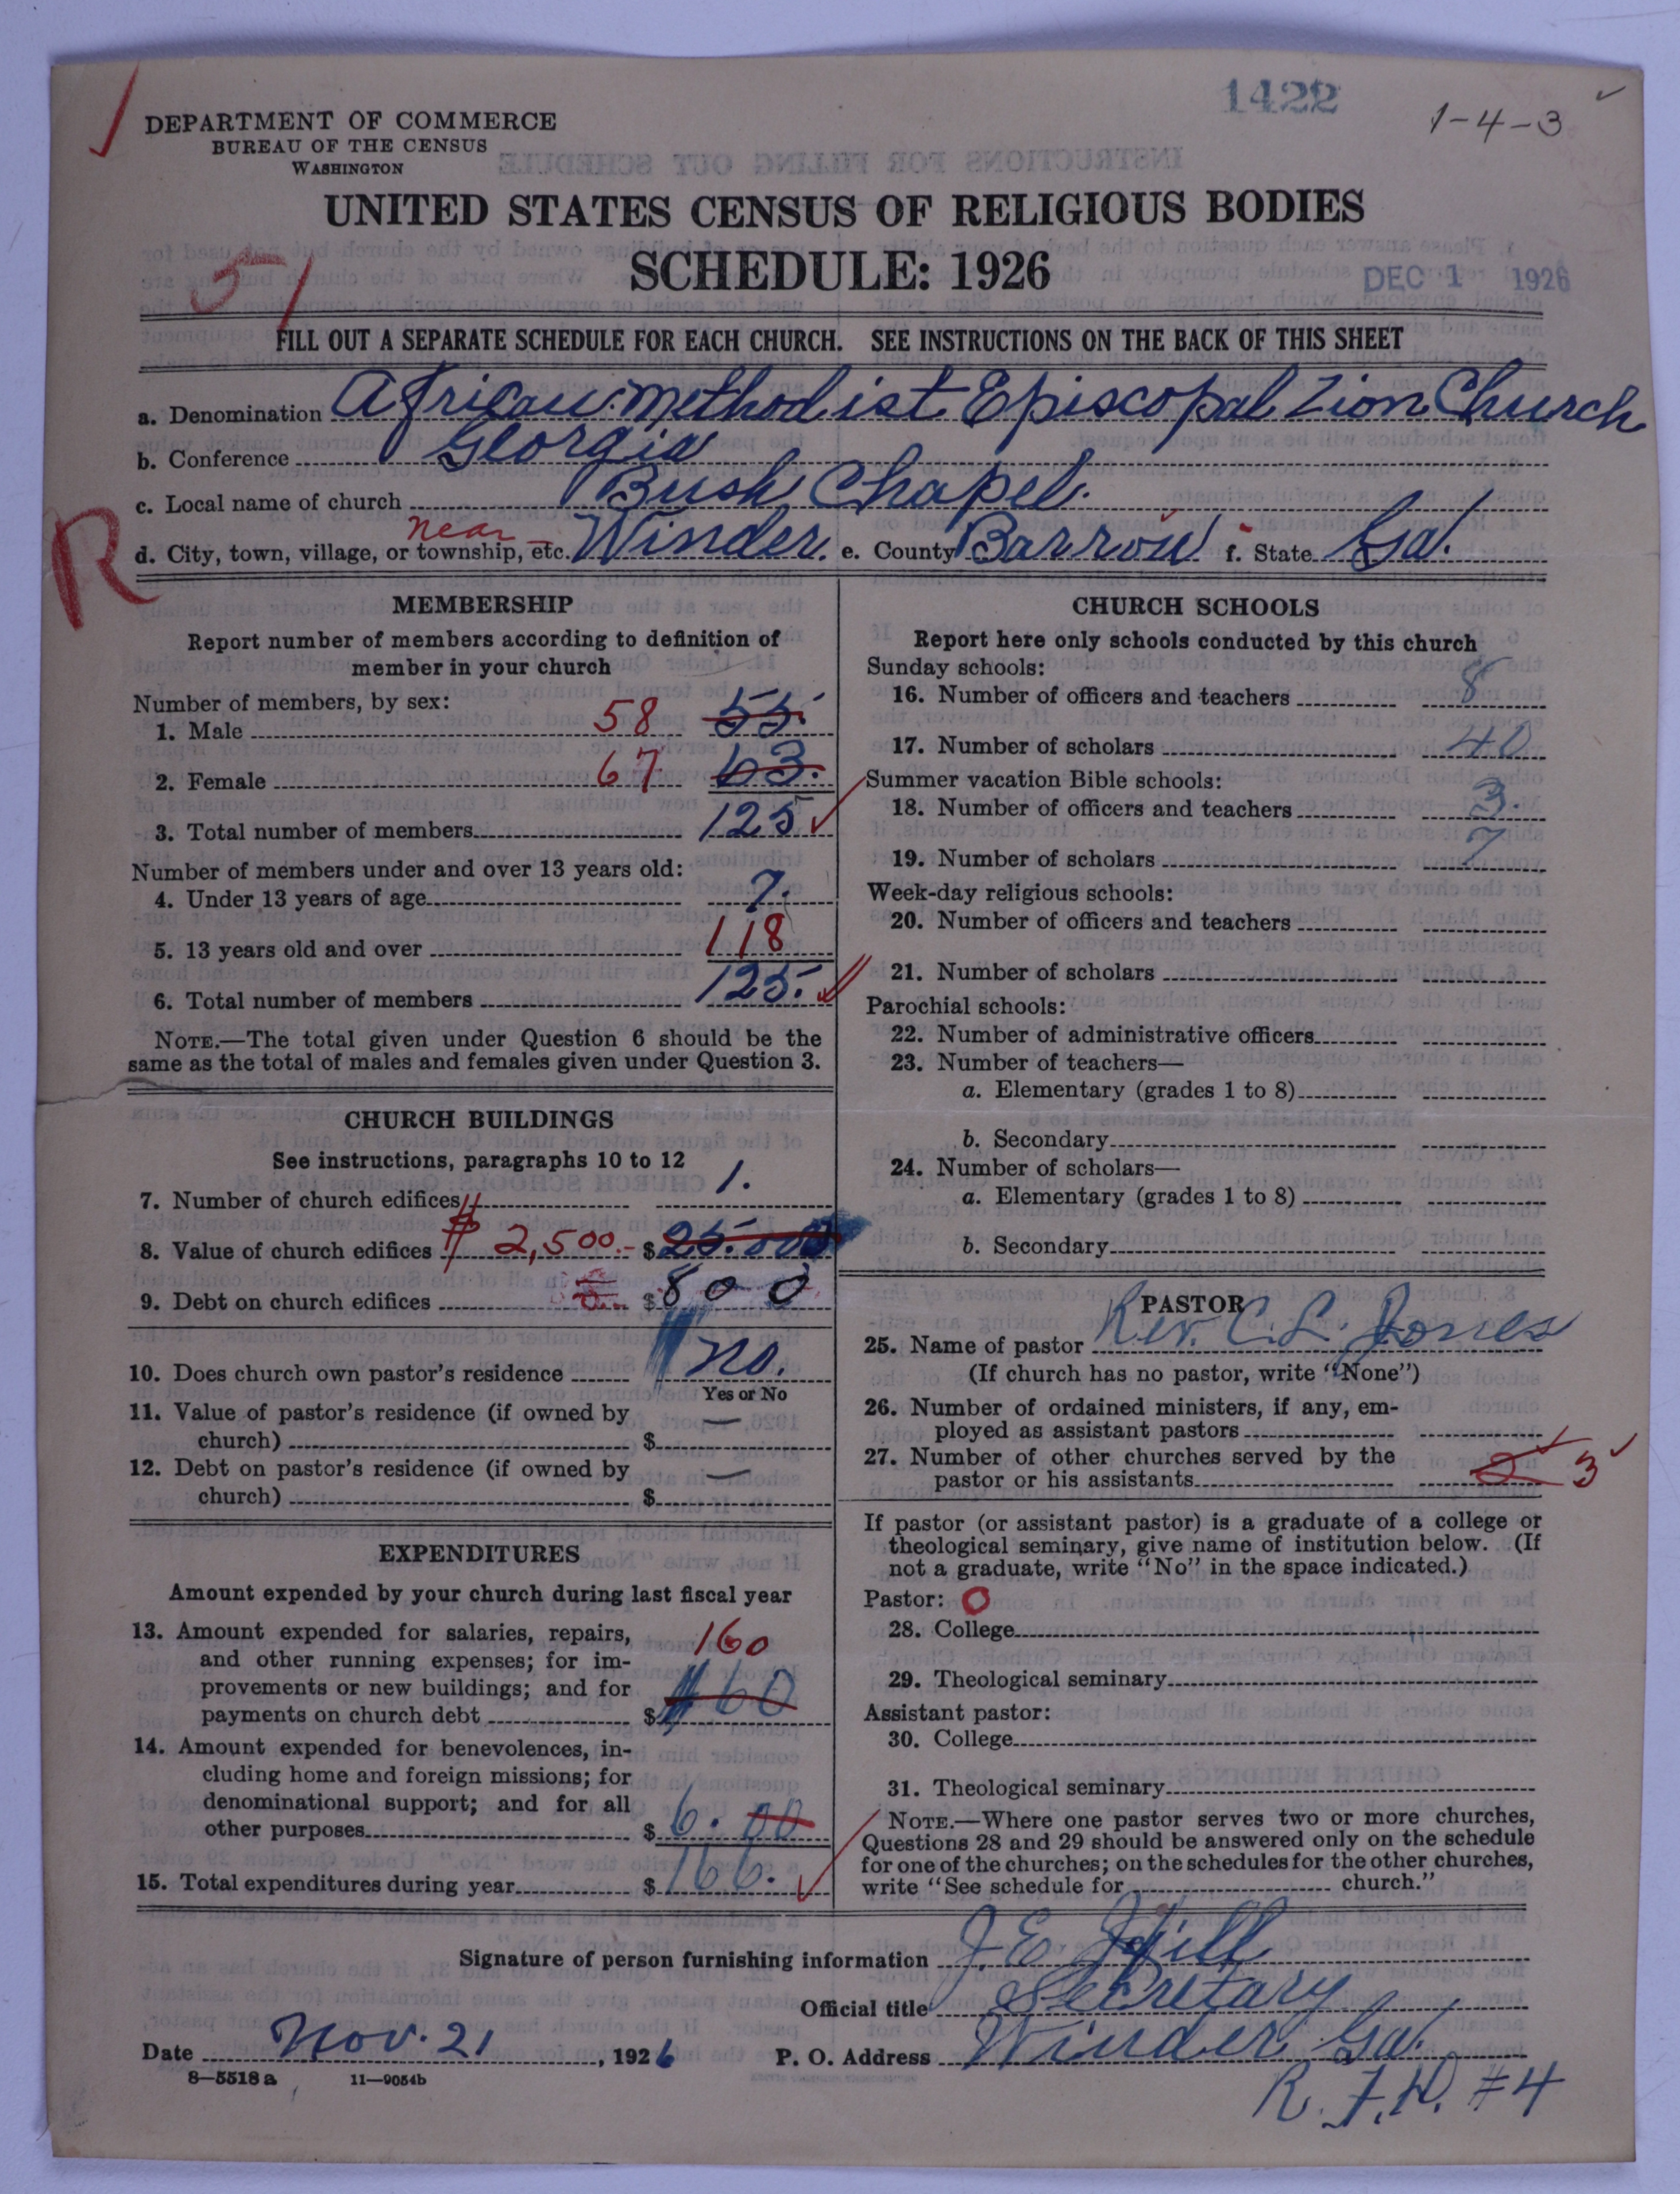 1422
1-4-3
DEPARTMENT OF COMMERCE
BUREAU OF THE CENSUS
WASHINGTON
UNITED STATES CENSUS OF RELIGIOUS BODIES
SCHEDULE: 1926
51
DEC 1 1926
FILL OUT A SEPARATE SCHEDULE FOR EACH CHURCH. SEE INSTRUCTIONS ON THE BACK OF THIS SHEET
a. Denomination African Methodist Episcopal Zion Church
b. Conference Georgia
c. Local name of church Bush Chapel.
near
d. City, town, village, or township, etc. Winder. e. County Barrow f. State Ga.
R
MEMBERSHIP
Report number of members according to definition of
member in your church
Number of members, by sex:
1. Male 58 55.
2. Female 67 63.
3. Total number of members 125
Number of members under and over 13 years old:
4. Under 13 years of age 7.
5. 13 years old and over 118
6. Total number of members 125.
NOTE.—The total given under Question 6 should be the
same as the total of males and females given under Question 3.
CHURCH BUILDINGS
See instructions, paragraphs 10 to 12
7. Number of church edifices 1.
8. Value of church edifices $ 2,500.- $ 25.000
9. Debt on church edifices $ 800
10. Does church own pastor's residence no.
Yes or No
11. Value of pastor's residence (if owned by
church) $ —
12. Debt on pastor's residence (if owned by
church) $ —
EXPENDITURES
Amount expended by your church during last fiscal year
13. Amount expended for salaries, repairs,
and other running expenses; for im-
provements or new buildings; and for
payments on church debt $ 160 60
14. Amount expended for benevolences, in-
cluding home and foreign missions; for
denominational support; and for all
other purposes $ 6.00
15. Total expenditures during year $ 166.
CHURCH SCHOOLS
Report here only schools conducted by this church
Sunday schools:
16. Number of officers and teachers 8
17. Number of scholars 40
Summer vacation Bible schools:
18. Number of officers and teachers 3.
19. Number of scholars 7
Week-day religious schools:
20. Number of officers and teachers
21. Number of scholars
Parochial schools:
22. Number of administrative officers
23. Number of teachers—
a. Elementary (grades 1 to 8)
b. Secondary
24. Number of scholars—
a. Elementary (grades 1 to 8)
b. Secondary
PASTOR
25. Name of pastor Rev. C. L. Jones
(If church has no pastor, write "None")
26. Number of ordained ministers, if any, em-
ployed as assistant pastors
27. Number of other churches served by the
pastor or his assistants 2 3
If pastor (or assistant pastor) is a graduate of a college or
theological seminary, give name of institution below. (If
not a graduate, write "No" in the space indicated.)
Pastor: O
28. College
29. Theological seminary
Assistant pastor:
30. College
31. Theological seminary
NOTE.—Where one pastor serves two or more churches,
Questions 28 and 29 should be answered only on the schedule
for one of the churches; on the schedules for the other churches,
write "See schedule for church."
Signature of person furnishing information J. E. Hill
Official title Secretary
Date Nov. 21, 1926 P. O. Address Winder Ga.
8—5518 a 11—9054b
R. F. D. #4